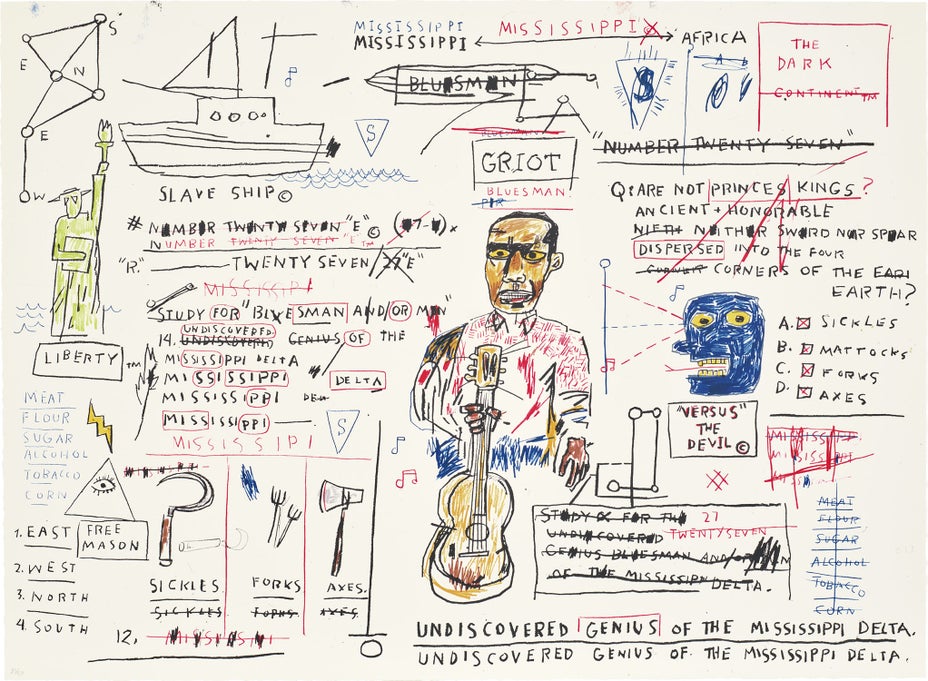 S
E
N
E
W
MISSISSIPPI
MISSISSIPPI
MISSISSIPPI
AFRICA
THE
DARK
CONTINENT™
BLUESMAN
S
A B
S
SLAVE SHIP©
BLUESMAN
GRIOT
BLUESMAN
"NUMBER TWENTY SEVEN"
# NUMBER TWENTY SEVEN "E" ©
NUMBER TWENTY SEVEN "E"™
"R." TWENTY SEVEN 27 "E"
MISSISSIPPI
STUDY FOR "BLUESMAN AND/OR MAN"
UNDISCOVERED
14. UNDISCOVERED GENIUS OF THE
MISSISSIPPI DELTA
MISSISSIPPI
DELTA
MISSISSIPPI
MISSISSIPPI
MISSISSIPPI
S
LIBERTY ™
MEAT
FLOUR
SUGAR
ALCOHOL
TOBACCO
CORN
FREE
MASON
1. EAST
2. WEST
3. NORTH
4. SOUTH
SICKLES. FORKS AXES.
SICKLES FORKS AXES.
12.
Q: ARE NOT PRINCES KINGS?
ANCIENT + HONORABLE
NIETH NEITHER SWORD NOR SPEAR
DISPERSED INTO THE FOUR
CORNER CORNERS OF THE EARI
EARTH?
A. SICKLES
B. MATTOCKS
C. FORKS
D. AXES
"VERSUS"
THE
DEVIL ©
MISSISSIPPI
MEAT
FLOUR
SUGAR
ALCOHOL
TOBACCO
CORN
STUDY FOR THE 27
UNDISCOVERED TWENTYSEVEN
GENIUS BLUESMAN AND/OR MAN
OF THE MISSISSIPPI DELTA.
UNDISCOVERED GENIUS OF THE MISSISSIPPI DELTA.
UNDISCOVERED GENIUS OF THE MISSISSIPPI DELTA.